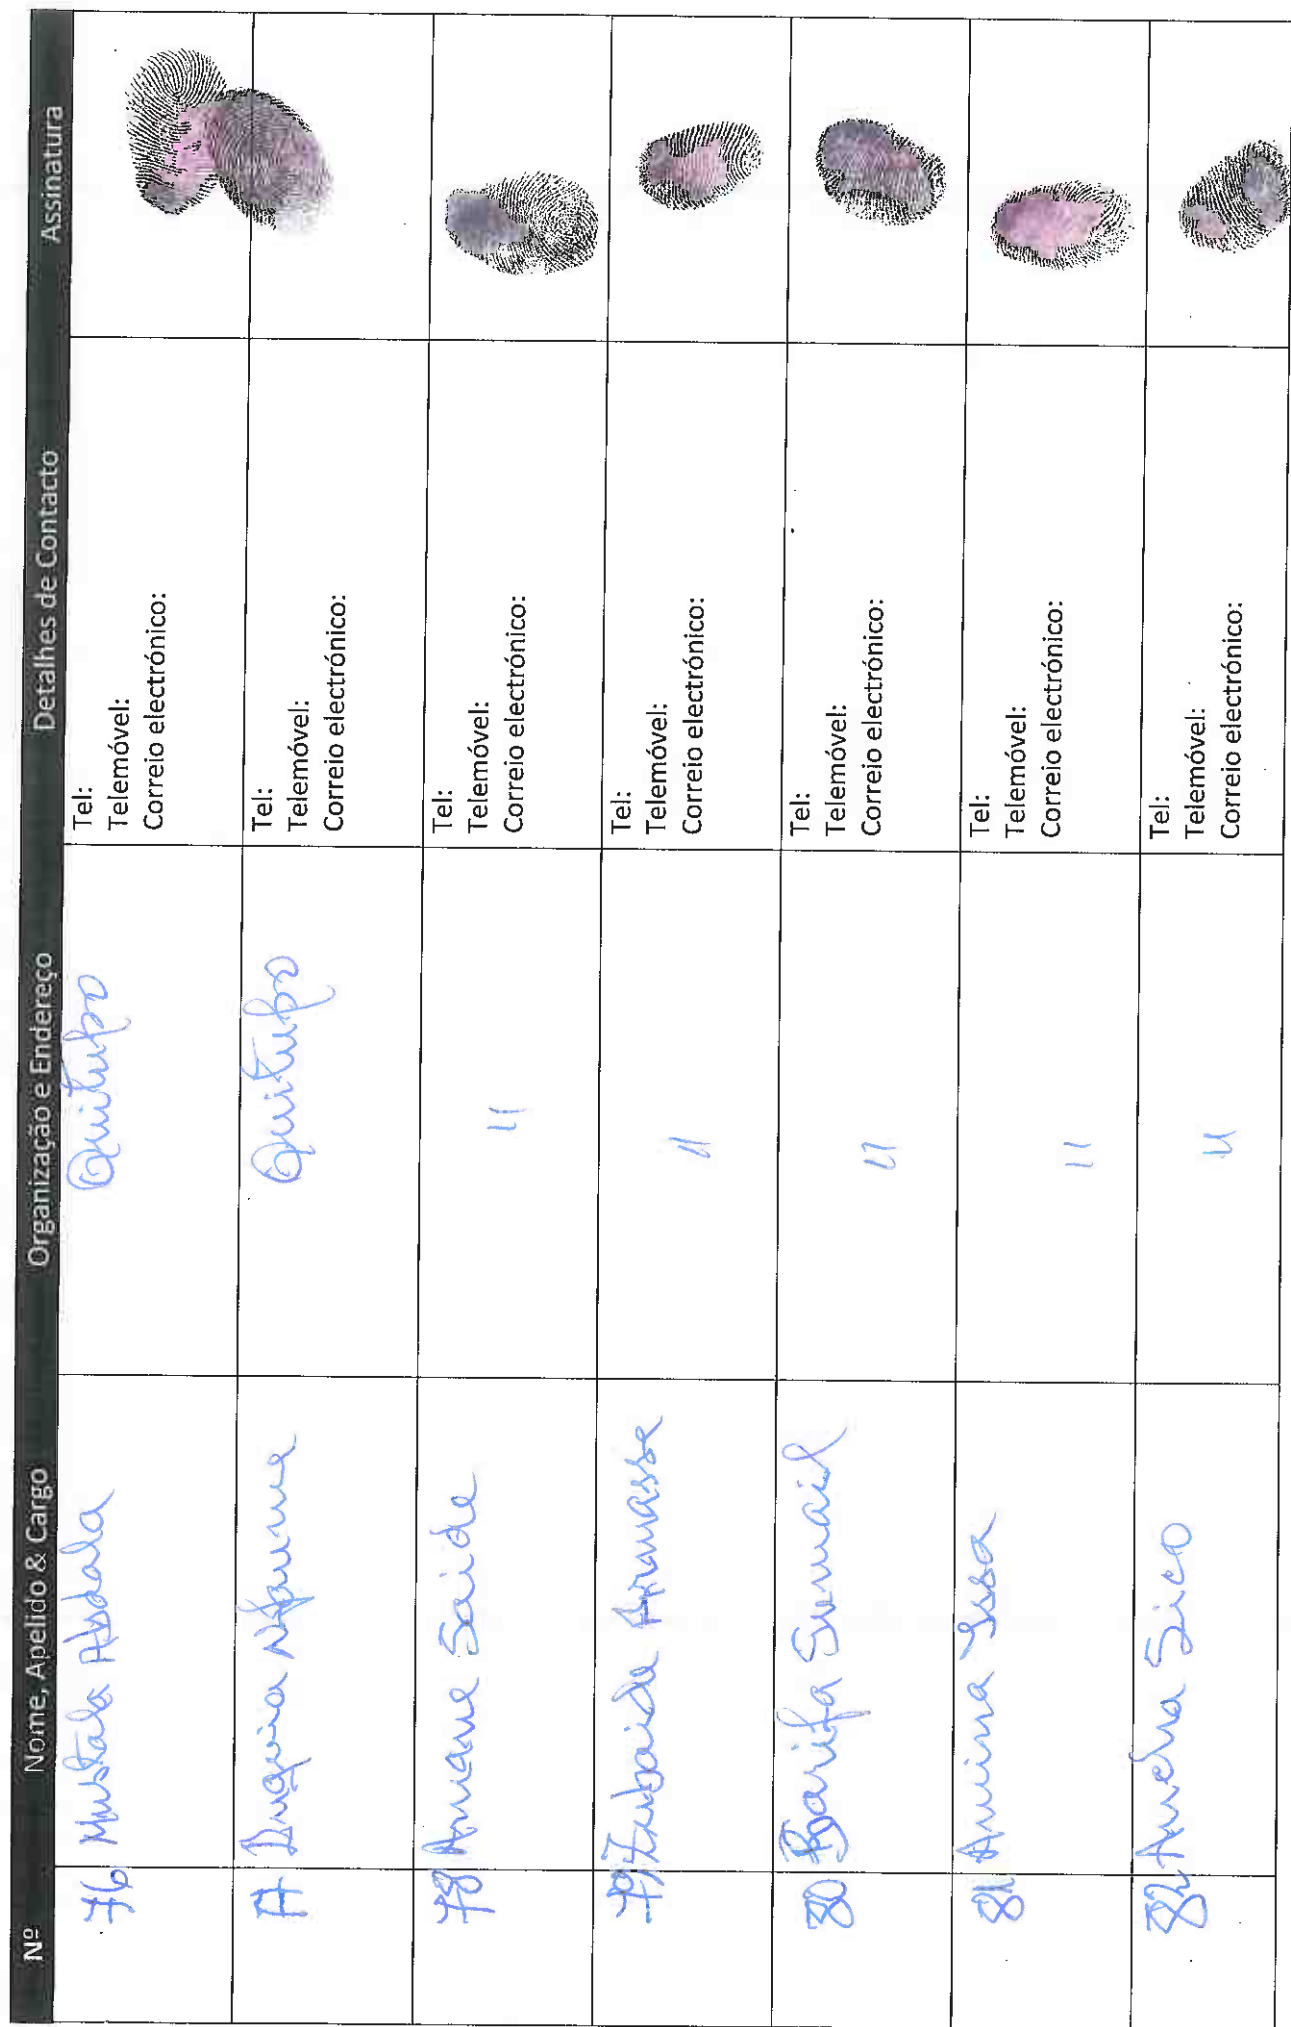 Nº Nome, Apelido & Cargo Organização e Endereço Detalhes de Contacto Assinatura
76 Mustafa Abdala Quitupo Tel:
Telemóvel:
Correio electrónico:
77 Quitupo Tel:
Telemóvel:
Correio electrónico:
78 Amane Saide 11 Tel:
Telemóvel:
Correio electrónico:
79 Zubaide Amasse 11 Tel:
Telemóvel:
Correio electrónico:
80 Sumail 11 Tel:
Telemóvel:
Correio electrónico:
81 Amina Issa 11 Tel:
Telemóvel:
Correio electrónico:
82 Sico 11 Tel:
Telemóvel:
Correio electrónico: